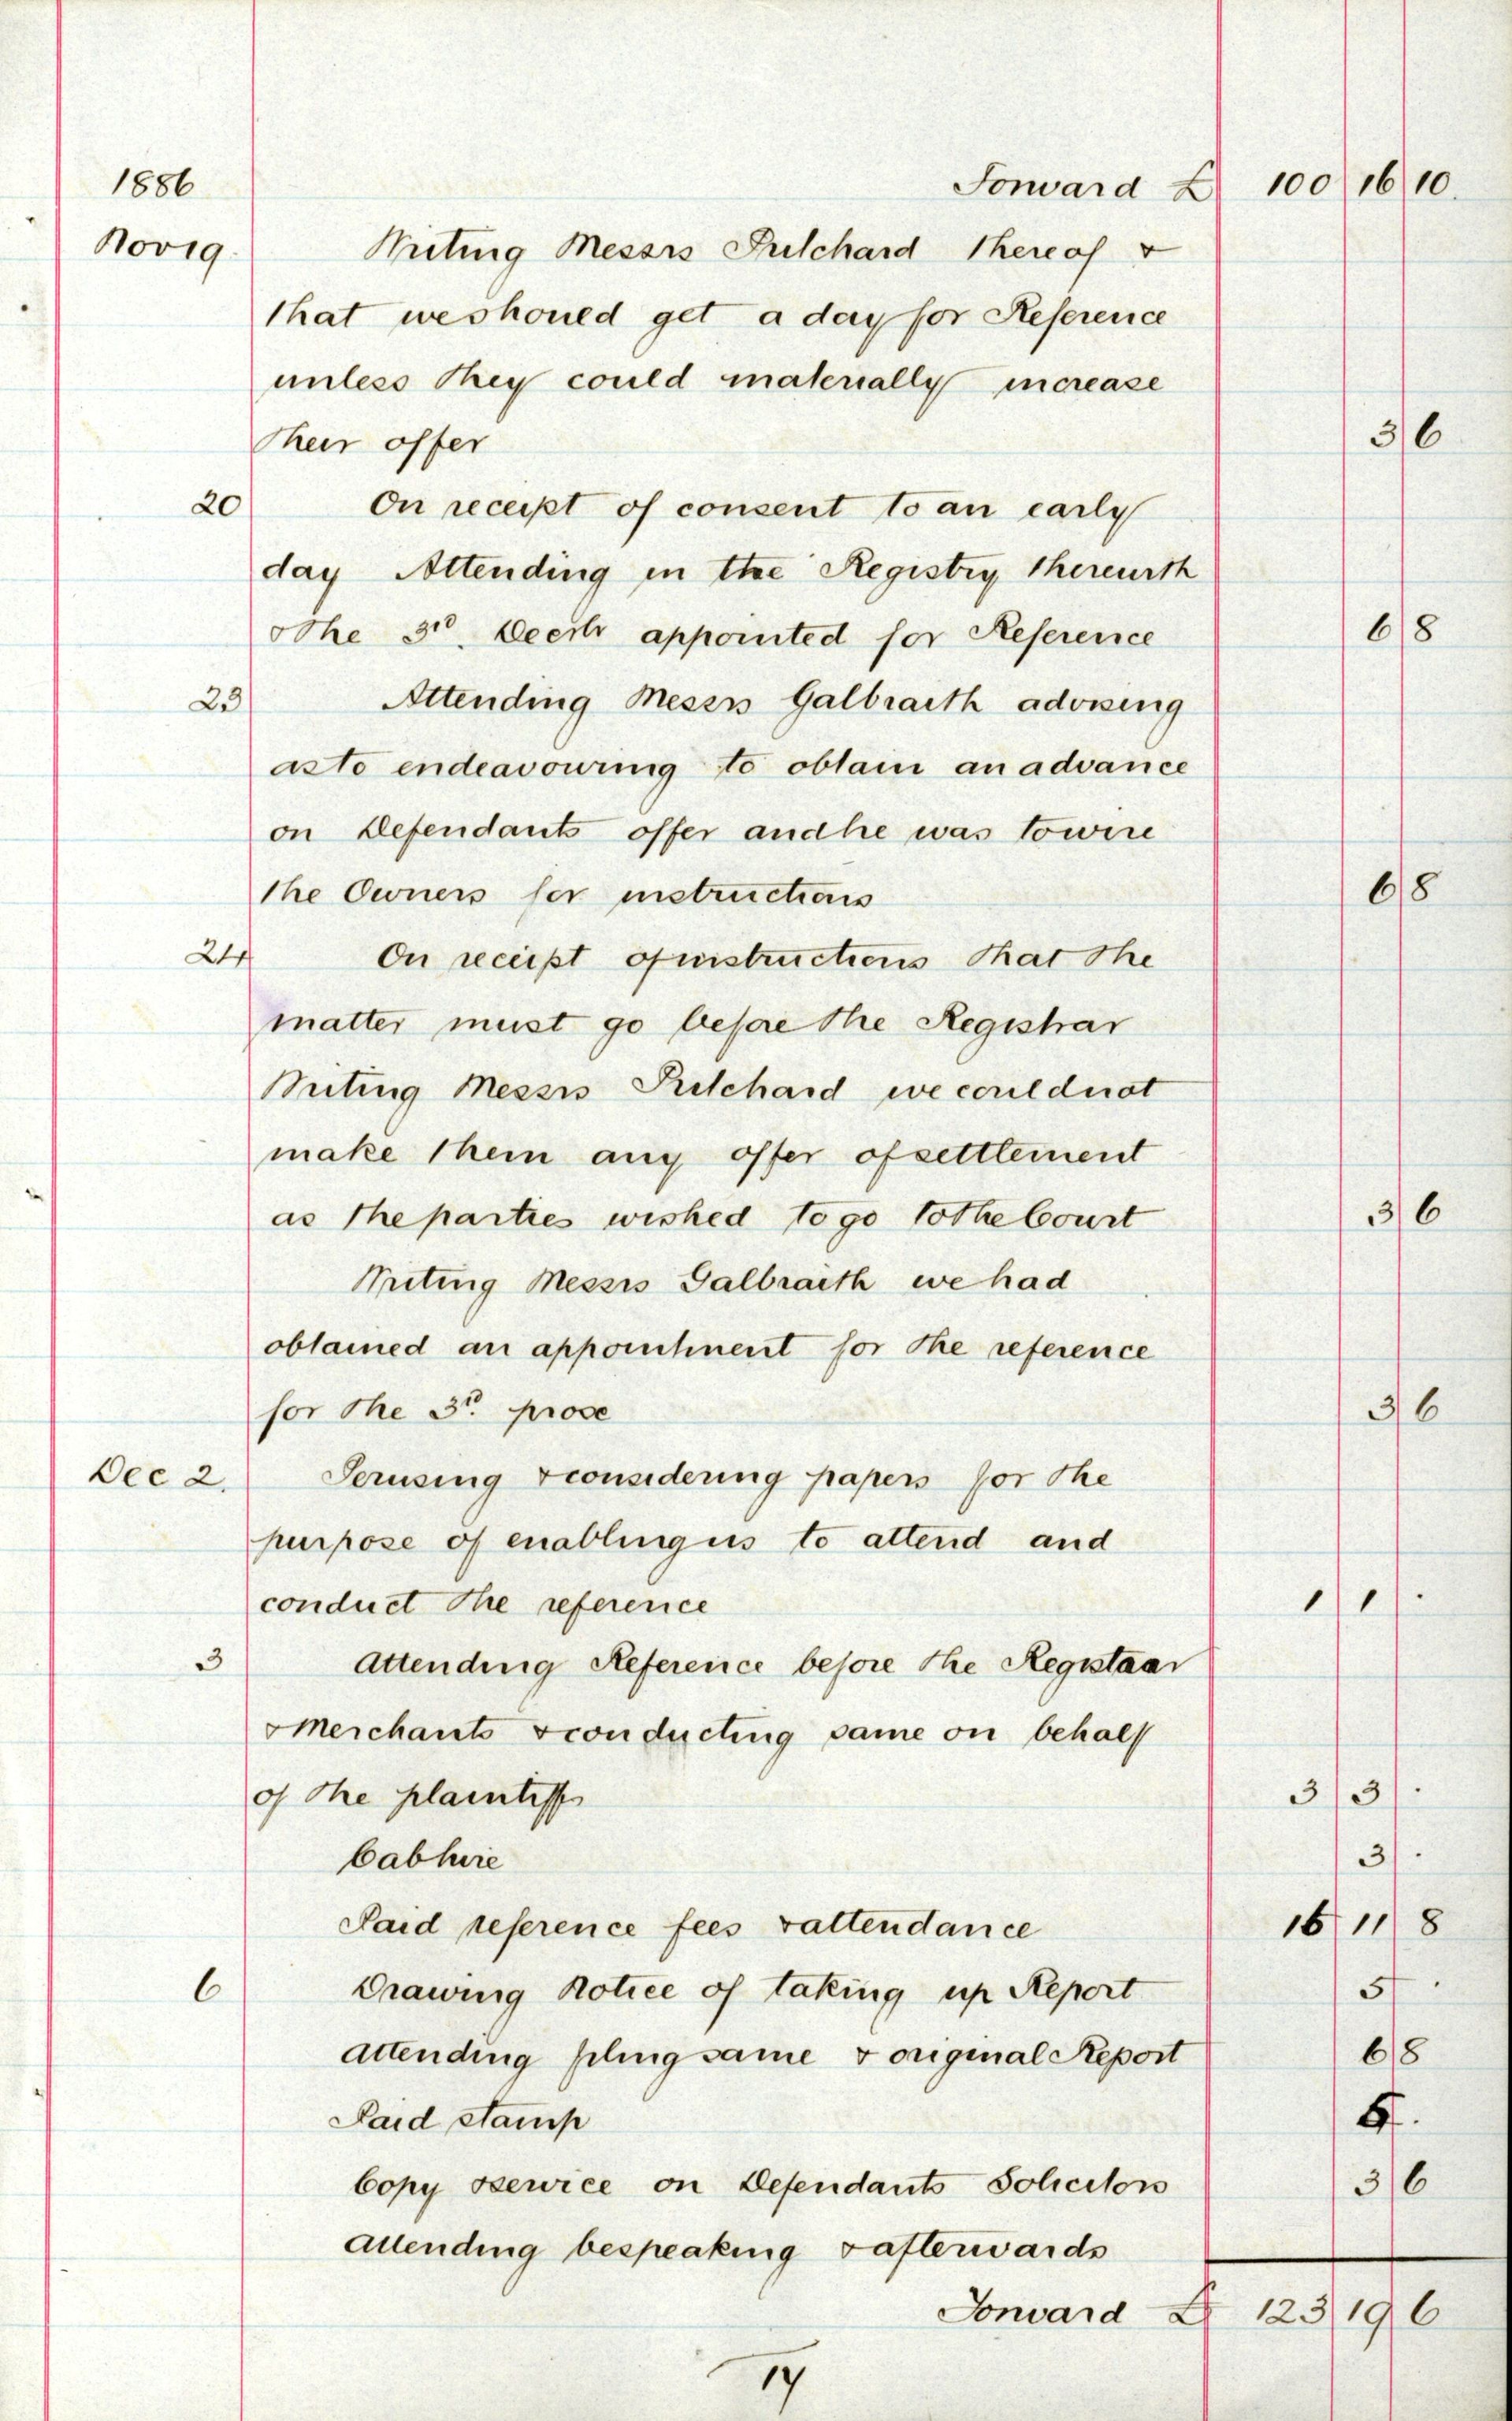 1886 Forward £ 100 16 10.
Nov 19. Writing Messrs Pritchard thereof &
that we should get a day for Reference
unless they could materially increase
their offer 3 6
20 On receipt of consent to an early
day Attending in the Registry therewith
& the 3rd. Decr appointed for Reference 6 8
23 Attending Messrs Galbraith advising
as to endeavouring to obtain an advance
on Defendants offer and he was to wire
the Owners for instructions 6 8
24 On receipt of instructions that the
matter must go before the Registrar
Writing Messrs Pritchard we could not
make them any offer of settlement
as the parties wished to go to the Court 3 6
Writing Messrs Galbraith we had
obtained an appointment for the reference
for the 3rd. proxo 3 6
Dec 2. Perusing & considering papers for the
purpose of enabling us to attend and
conduct the reference 1 1 .
3 Attending Reference before the Registaar
& Merchants & conducting same on behalf
of the plaintiffs 3 3 .
Cab hire 3 .
Paid reference fees & attendance 16 11 8
6 Drawing Notice of taking up Report 5 .
Attending filing same & original Report 6 8
Paid stamp 5 .
Copy & service on Defendants Solicitors 3 6
Attending bespeaking & afterwards
Forward £ 123 19 6
17